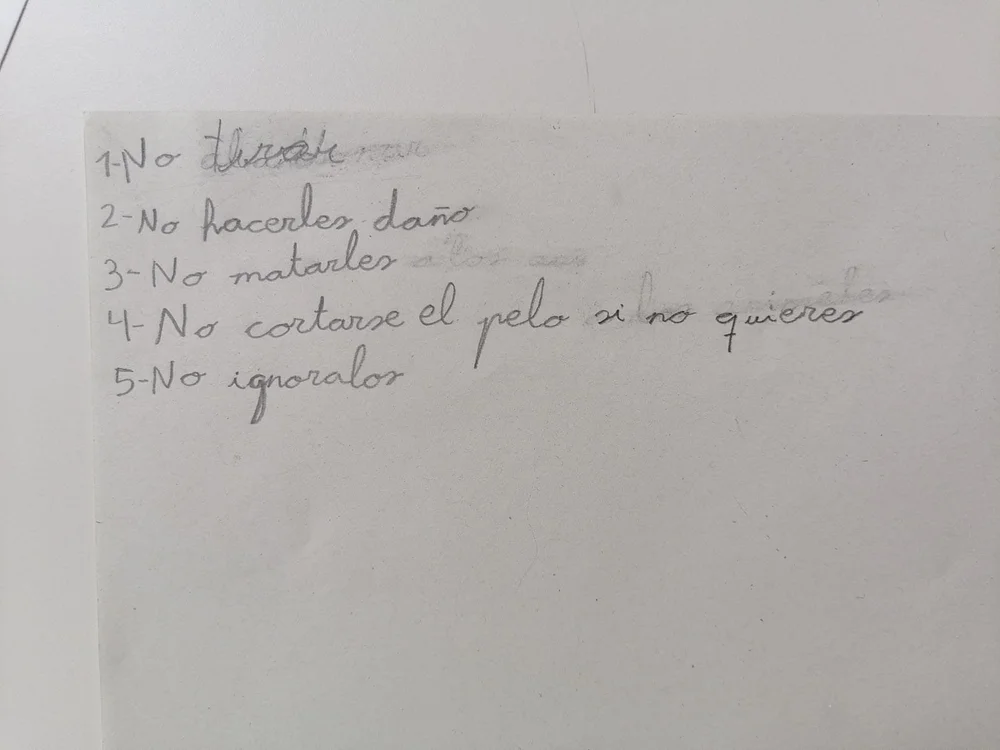 1-No
2-No hacerles daño
3-No matarles
4-No cortarse el pelo si no quieres
5-No ignoralos